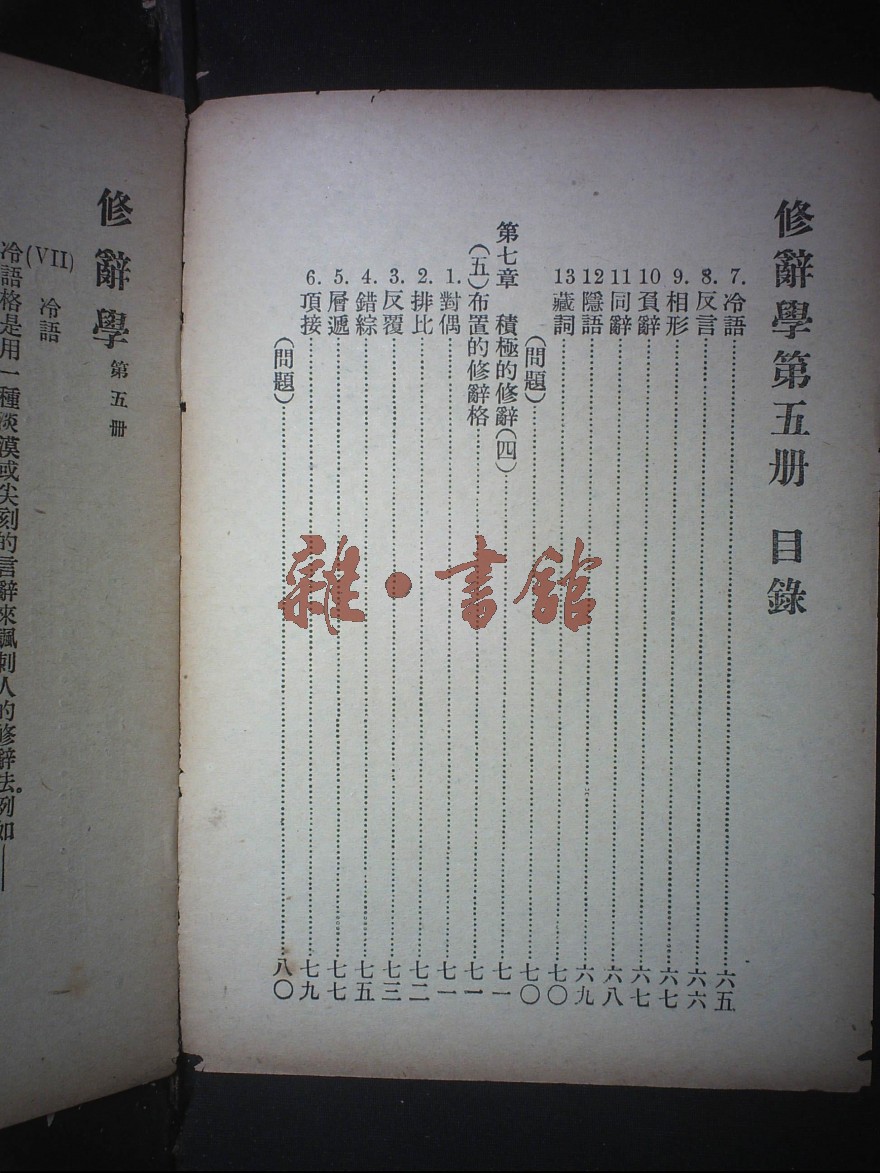 修辭學第五册 目錄
7. 冷語……六五
8. 反言……六六
9. 相形……六七
10 負辭……六七
11 同辭……六八
12 隱語……六九
13 藏詞……七〇
(問題)……七〇
第七章 積極的修辭(四)……七一
(五)布置的修辭格……七一
1. 對偶……七一
2. 排比……七二
3. 反覆……七三
4. 錯綜……七五
5. 層遞……七七
6. 頂接……七九
(問題)……八〇
修辭學 第五册
(VII) 冷語
冷語格是用一種淡漠或尖刻的言辭來諷刺人的修辭法。例如——
雜·書館